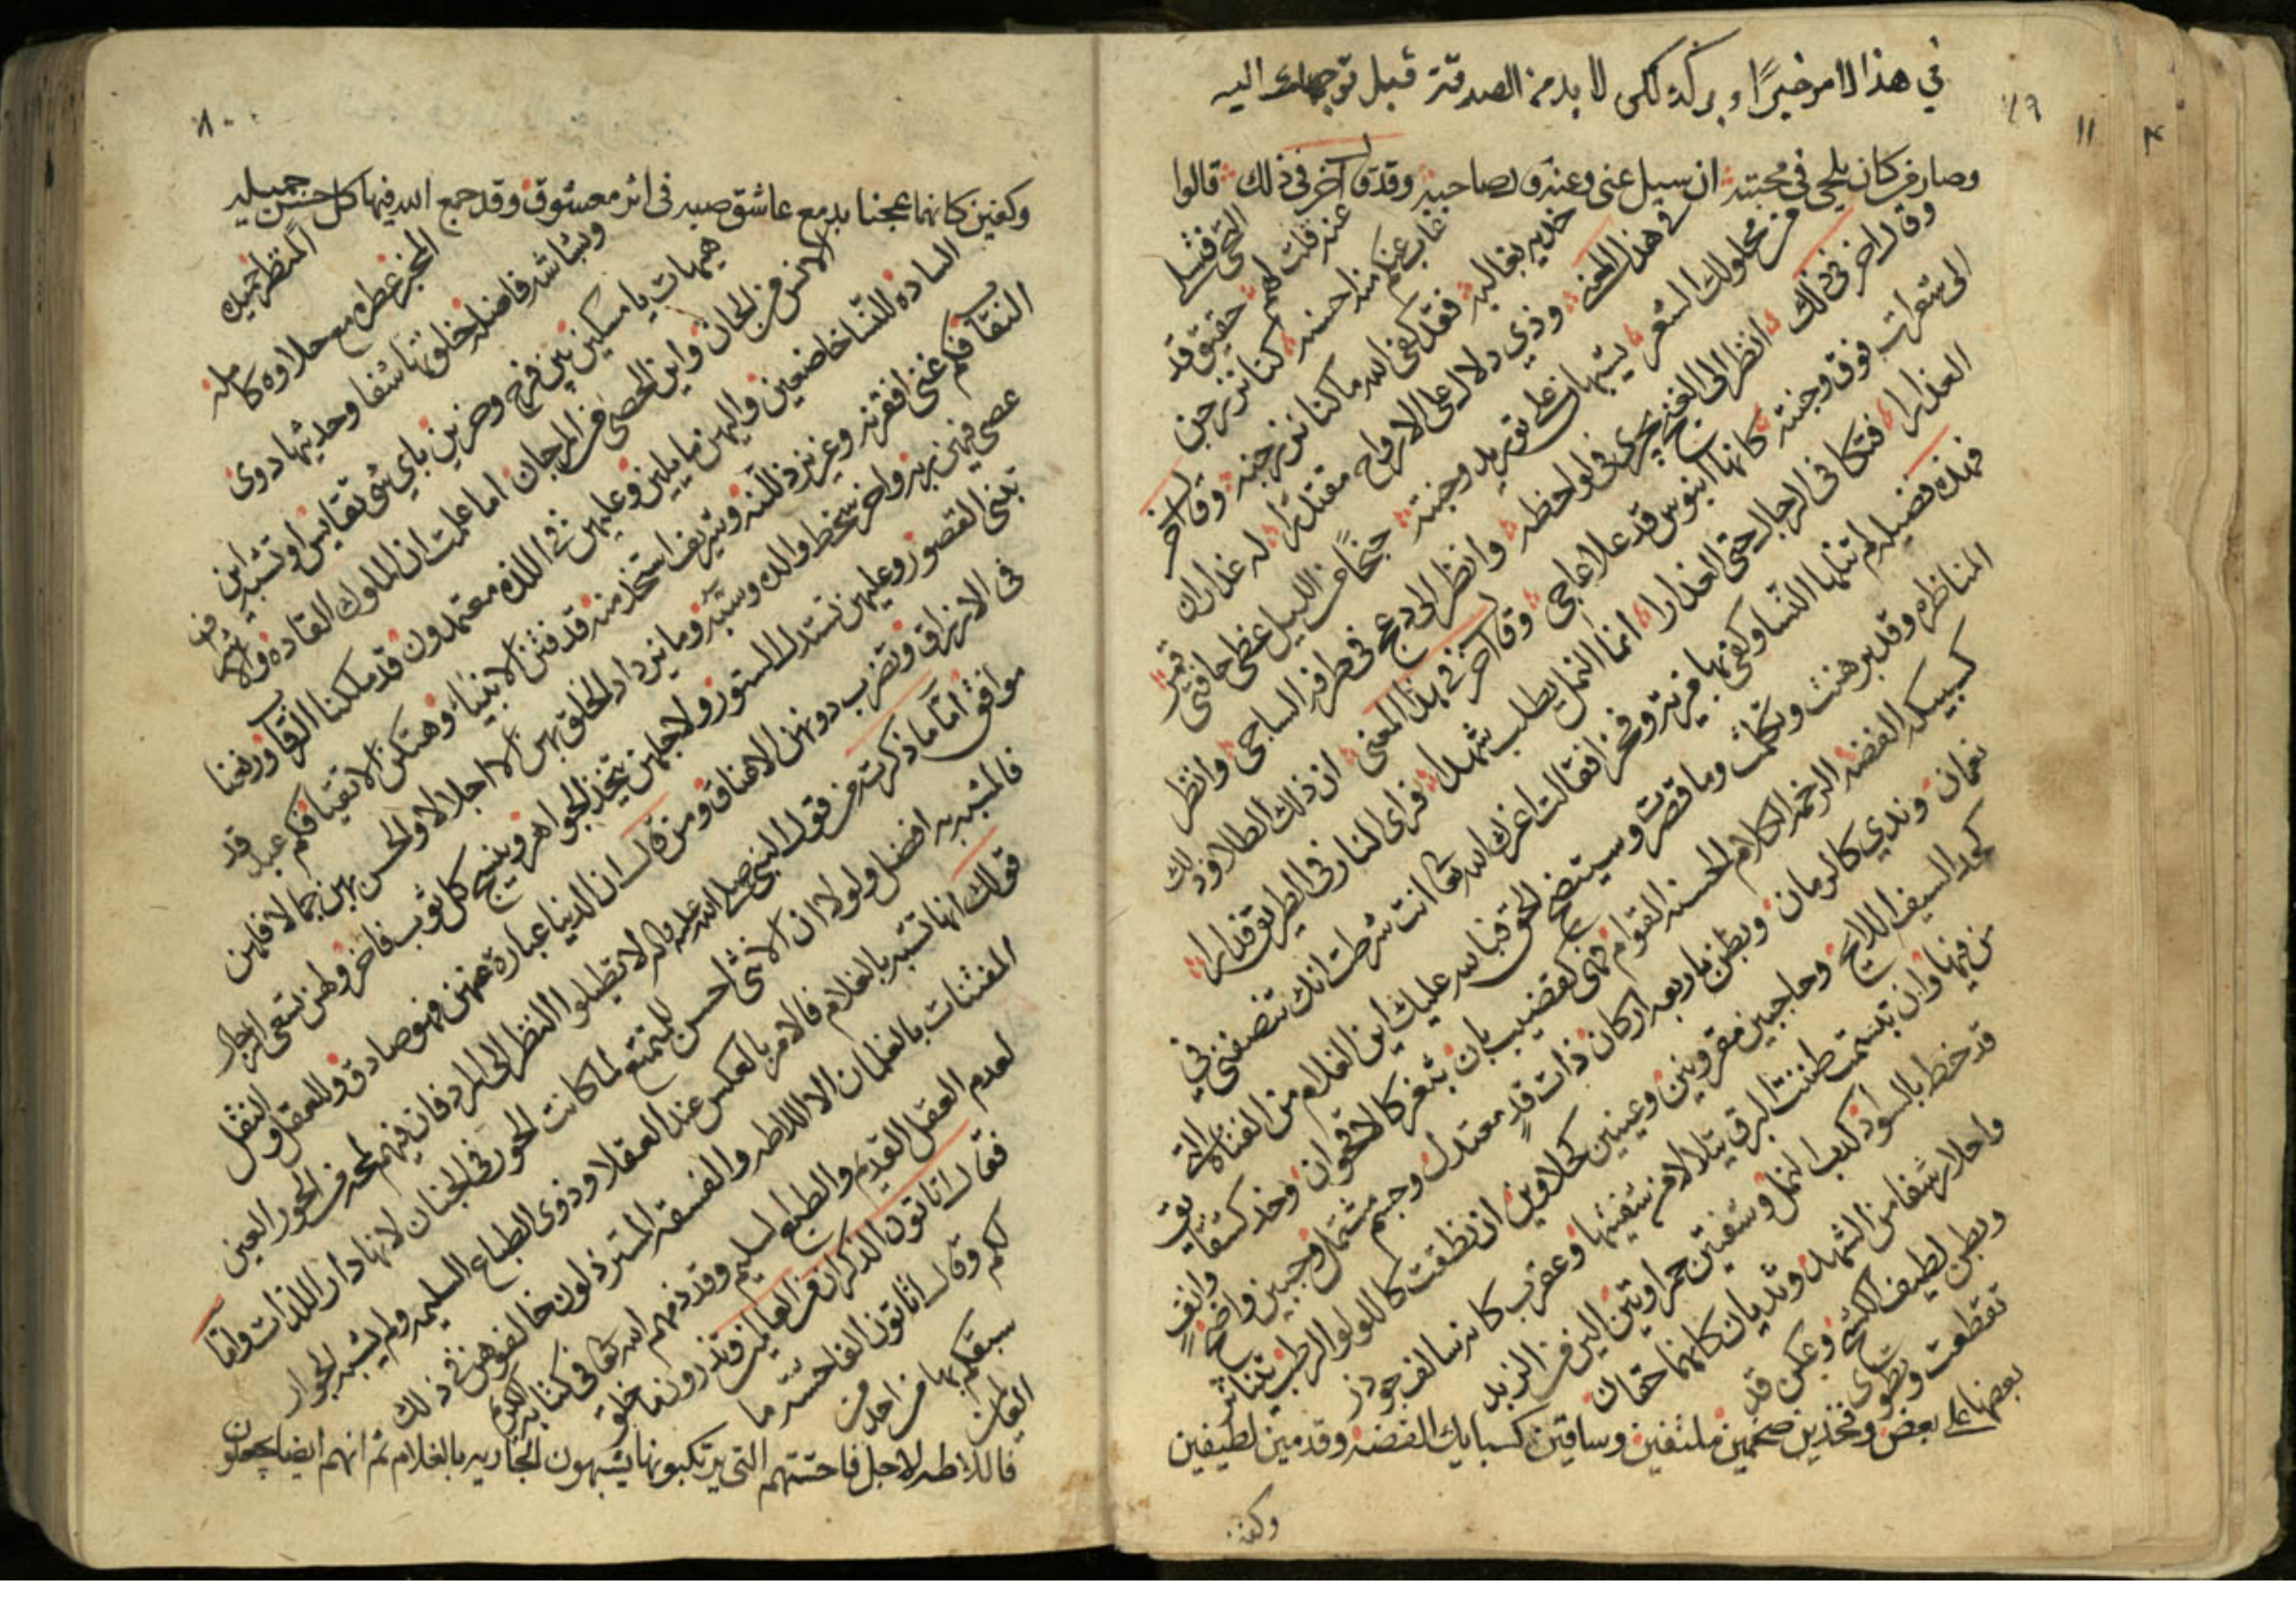 في هذا الامر خيرًا وبركه لكن لا بد من الصدقة قبل توجهك اليه
٧٩
وصار من كان يلحى في محبته ان سيل عنى وعنه قد لصاحبه وقد قال آخر فى ذلك قالوا
التحى فتسلى عنه قلت لهم حقيق قد
غاب عنكم منه احسنه كنا نرجس
خديه بغاليه فقد كفى الله ما كنا نرجيه وقال اخر
في هذا المعنى وذي دلال على الارواح مقتدرا له عذاران
من محلولك الشعر يتيهان على توريد وجنته جنحا من الليل غطى حافتى قمر
وقال اخر فى ذلك انظر الى الغنج يجرى فى لواحظه وانظر الى دعج فى طرفه الساجى وانظر
الى شعرات فوق وجنته كانها ابنوس قد علا عاجى وقال آخر في هذا المعنى ان ذلك الطلا وذلك
العذارا فتكا فى الرجال حتى العذارا انما النمل يطلب شهدا فراى النار فى الطريق فدارا
فهذه فضيله لم تنلها النسا وكفى بها مزية وفخرا فقالت اعزك الله تعالى انت شرطت انك تنصفنى في
المناظره وقد برهنت وتكلمت وما قصرت وسيتضح الحق فبالله عليك اين الغلام من الفتاة التى
كسبيكه الفضه الرخمه الكلام الحسنه القوام فهى كقضيب بان بثغر كالاقحوان وخد كشقايق
نعمان وندي كالرمان وبطن باربعه اركان ذات قدٍ معتدل وجسم مشتمل وجبين واضح وانفٍ
كحد السيف اللايح وحاجبين مقرونين وعينين كحلاوين ان نطقت كاللولو الرطب يتناثر
من فيها وان تبسمت ظننت البرق يتلالا من شفتيها وعقرب كانه سالف جوذر
قد خط بالسواد كبب النمل وشفتين حمراوتين الين من الزبد
واحلا رشفا من الشهد وثديان كانهما حقان
وبطن لطيف الكشح وعكن قد
تقطعت وتطوى
بعضها على بعض وفخذين ضخمين ملتفين وساقين كسبايك الفضه وقدمين لطيفين
وكفين
٨٠
وكفين كانهما عجنا بدمع عاشق صب فى اثر معشوق وقد جمع الله فيها كل حسن جميله
المنظر حميدة
المخبر عطره مع حلاوه كامله
وبشاشه فاضله خلقتها شفا وحديثها دوى
هيهات يا مسكين بين فرح وحزين باي شى تقايس او تشبه اين
الانس من الجان واين الحصى من المرجان اما علمت ان الملوك القاده والاشراف
الساده للنسا خاضعين واليهن مايلين وعليهن في اللذه معتمدون قد ملكنا الرقاب ونهبنا
النقاب فكم غنى افقرنه وعزيز ذللنه وشريف استخدمنه قد فتن الانبيا وهتكن الاتقيا فكم عبد قد
عصى فيهن ربه واخر سخط والده وسبه وما يزداد الخلق بهن الا اجلالا والحسن بهن جمالا فلهن
تبنى القصور وعليهن تستدل الستور ولاجلهن يتخذ الجواهر وينسج كل ثوب فاخر ولهن تسعى الرجال
فى الارزاق وتضرب دونهن الاعناق ومن قال ان الدنيا عبارة عنهن فهو صادق وللعقل والنقل
موافق اما ما ذكرت من قول النبى صلى الله عليه واله لا تطيلوا النظر الى المرد فان فيهم لمحه من الحور العين
فالمشبه به افضل ولولا ان الانثى احسن للتمتع لما كانت الحور فى الجنان لانها دار اللذات واما
قولك انها تشبه بالغلام فالامر بالعكس عند العقلا وذوى الطباع السليمه ولم يشبه الجوار
المغنثات بالغلمان الا اللاطه والفسقه المستر ذلون خالفوهن في ذلك
لعدم العقل القديم والطبع السليم وقد ذمهم الله تعالى فى كتابه الكريم
فقال اتاتون الذكران من العالمين وتذرون ما خلق
لكم وقال اتاتون الفاحشه ما
سبقكم بها من احد من
العالمين
فاللاطه لاجل فاحشتهم التى يرتكبونها يشبهون الجاريه بالغلام ثم انهم ايضا يجعلون